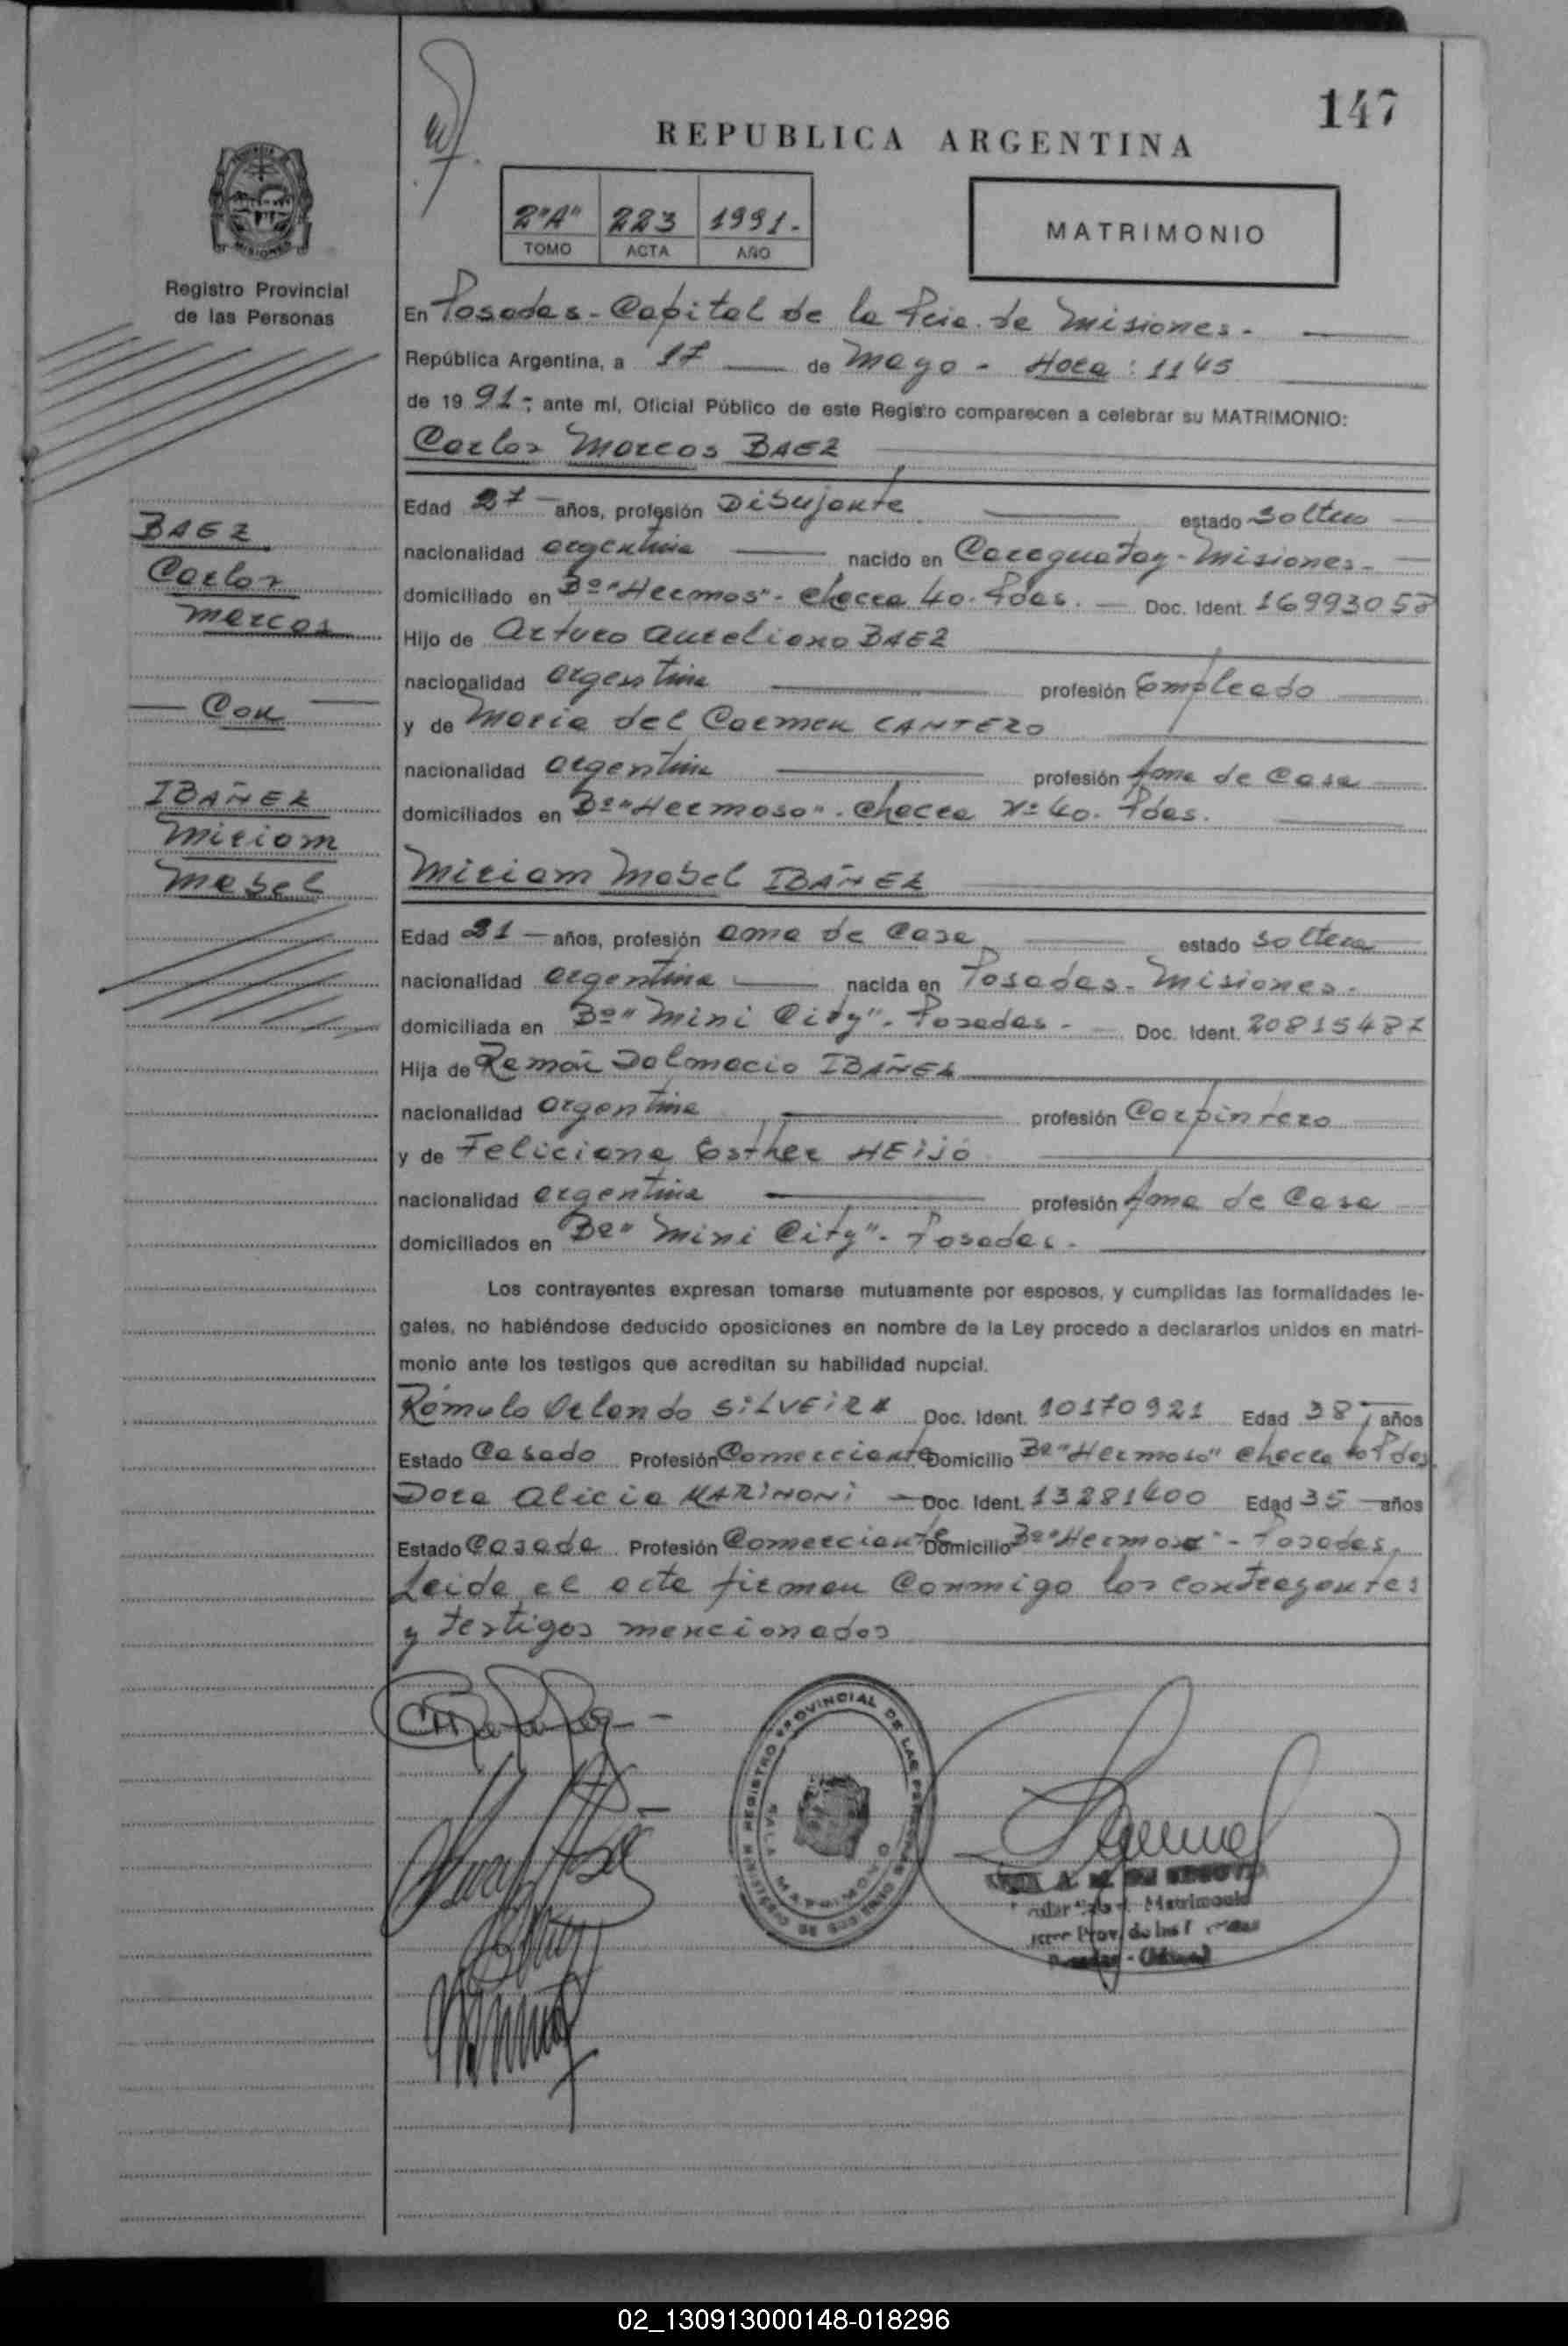 147
REPUBLICA ARGENTINA
2"A" 223 1991.-
TOMO ACTA AÑO
MATRIMONIO
Registro Provincial
de las Personas
En Posadas - Capital de la Pcia. de Misiones.-
República Argentina, a 17 de Mayo - Hora: 1145
de 1991-; ante mí, Oficial Público de este Registro comparecen a celebrar su MATRIMONIO:
Carlos Marcos BAEZ
Edad 27 años, profesión Dibujante estado soltero
BAEZ
nacionalidad argentina nacido en Caraguatay - Misiones.-
Carlos
domiciliado en Bº "Hermos" - Chacra 40. Pdas. Doc. Ident. 16993058
Marcos
Hijo de Arturo Aureliano BAEZ
nacionalidad argentina profesión Empleado
Con
y de Maria del Carmen CANTERO
nacionalidad argentina profesión Ama de Casa
IBAÑEZ
domiciliados en Bº "Hermoso" - Chacra Nº 40. Pdas.
Miriam
Mabel
Miriam Mabel IBAÑEZ
Edad 21 años, profesión ama de Casa estado soltera
nacionalidad argentina nacida en Posadas - Misiones.-
domiciliada en Bº "Mini City" - Posadas.- Doc. Ident. 20815487
Hija de Ramón Dalmacio IBAÑEZ
nacionalidad argentina profesión Carpintero
y de Feliciana Esther HEIJO
nacionalidad argentina profesión Ama de Casa
domiciliados en Bº "Mini City" - Posadas.-
Los contrayentes expresan tomarse mutuamente por esposos, y cumplidas las formalidades le-
gales, no habiéndose deducido oposiciones en nombre de la Ley procedo a declararlos unidos en matri-
monio ante los testigos que acreditan su habilidad nupcial.
Rómulo Orlando SILVEIRA Doc. Ident. 10170921 Edad 38 años
Estado Casado Profesión Comerciante Domicilio Bº "Hermoso" Chacra 40 Pdas
Dora Alicia MARINONI Doc. Ident. 13281400 Edad 35 años
Estado Casada Profesión Comerciante Domicilio Bº "Hermoso" - Posadas.
Leida el acta firman Conmigo los contrayentes
y testigos mencionados
REGISTRO PROVINCIAL DE LAS PERSONAS
SALA MATRIMONIO
MINISTERIO DE GOBIERNO
Matrimonio
Prov. de las
02_130913000148-018296